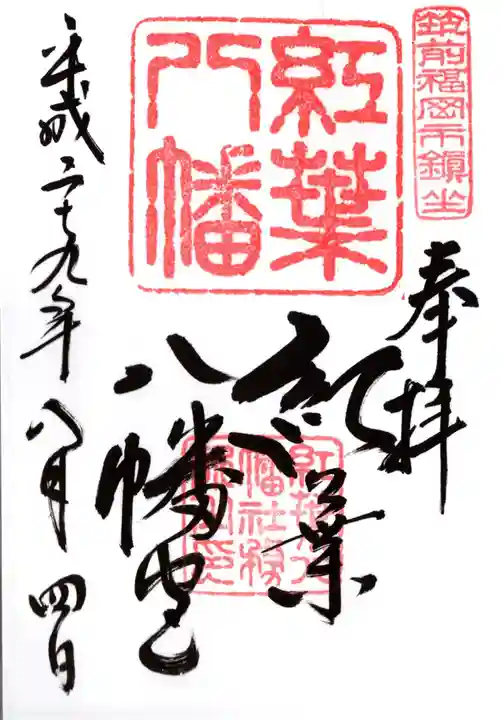 筑前福岡市鎮坐
奉拝
紅葉
八幡
紅葉
八幡宮
紅葉八
幡社務
平成二十九年八月四日